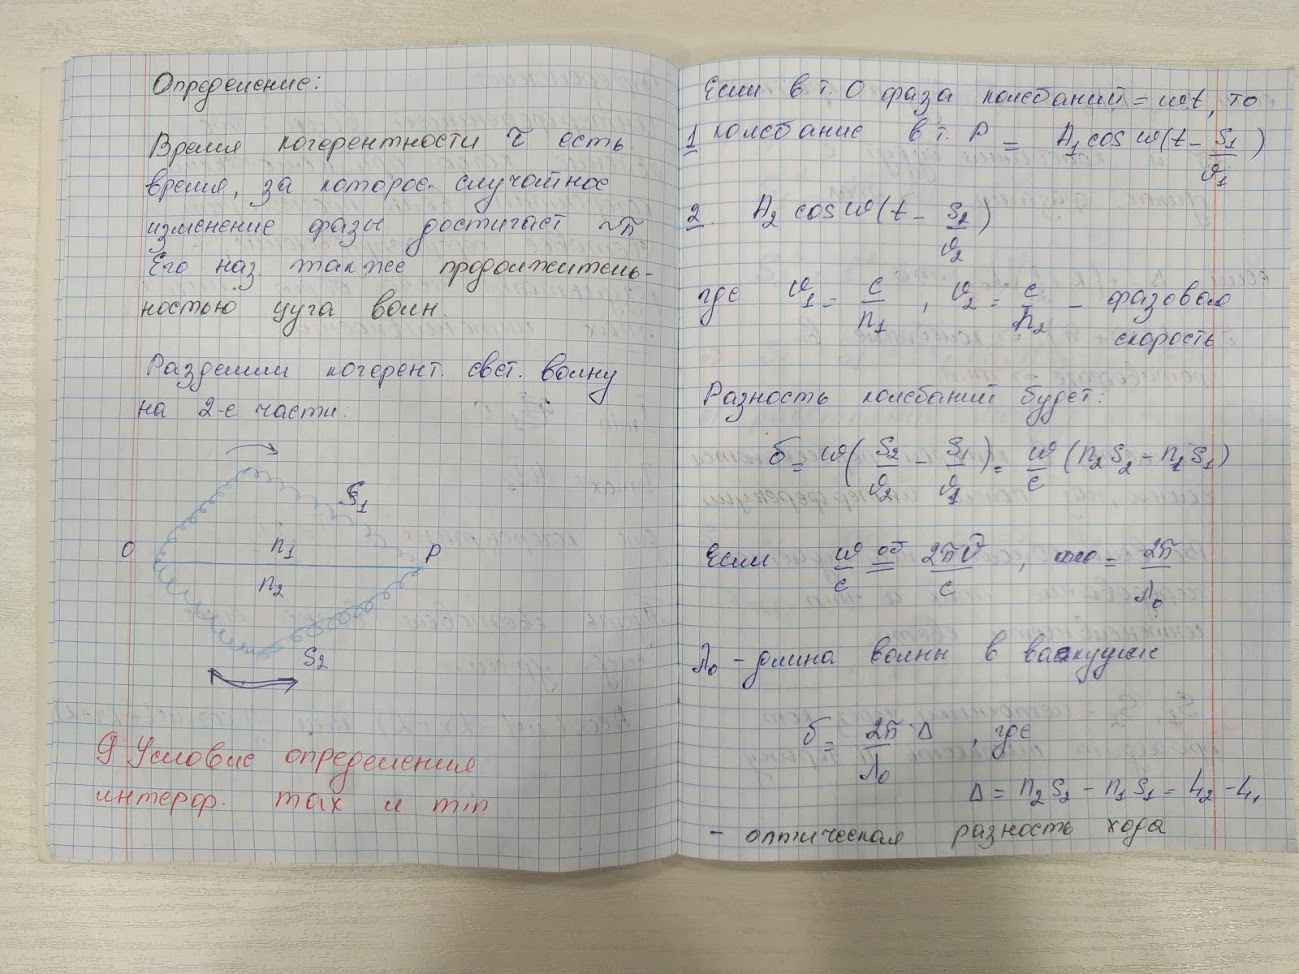 Определение:
Время когерентности τ есть
время, за которое случайное
изменение фазы достигает ~π
Его наз также продолжитель-
ностью цуга волн.
Разделим когерент. свет. волну
на 2-е части:
S₁
O n₁ P
n₂
S₂
9 Условие определения
интерф. max и min
Если в т. O фаза колебаний = ωt, то
1 колебание в т. P = A₁ cos ω(t - S₁/υ₁)
2 A₂ cos ω(t - S₂/υ₂)
где υ₁ = c/n₁ , υ₂ = c/n₂ - фазовая
скорость
Разность колебаний будет:
δ = ω(S₂/υ₂ - S₁/υ₁) = ω/c (n₂S₂ - n₁S₁)
Если ω/c = 2πυ/c , то = 2π/λ₀
λ₀ - длина волны в вакууме
δ = 2π/λ₀ Δ , где
Δ = n₂S₂ - n₁S₁ = L₂ - L₁
- оптическая разность хода